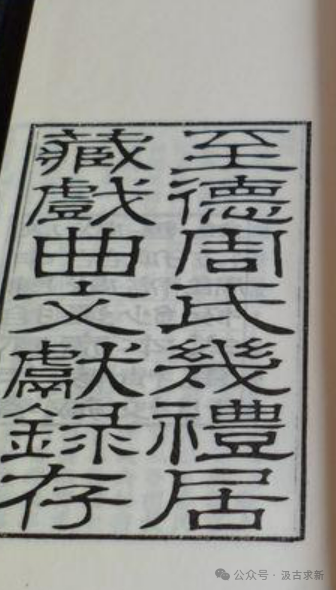 至德周氏幾禮居
藏戲曲文獻録存
公众号 · 汲古求新